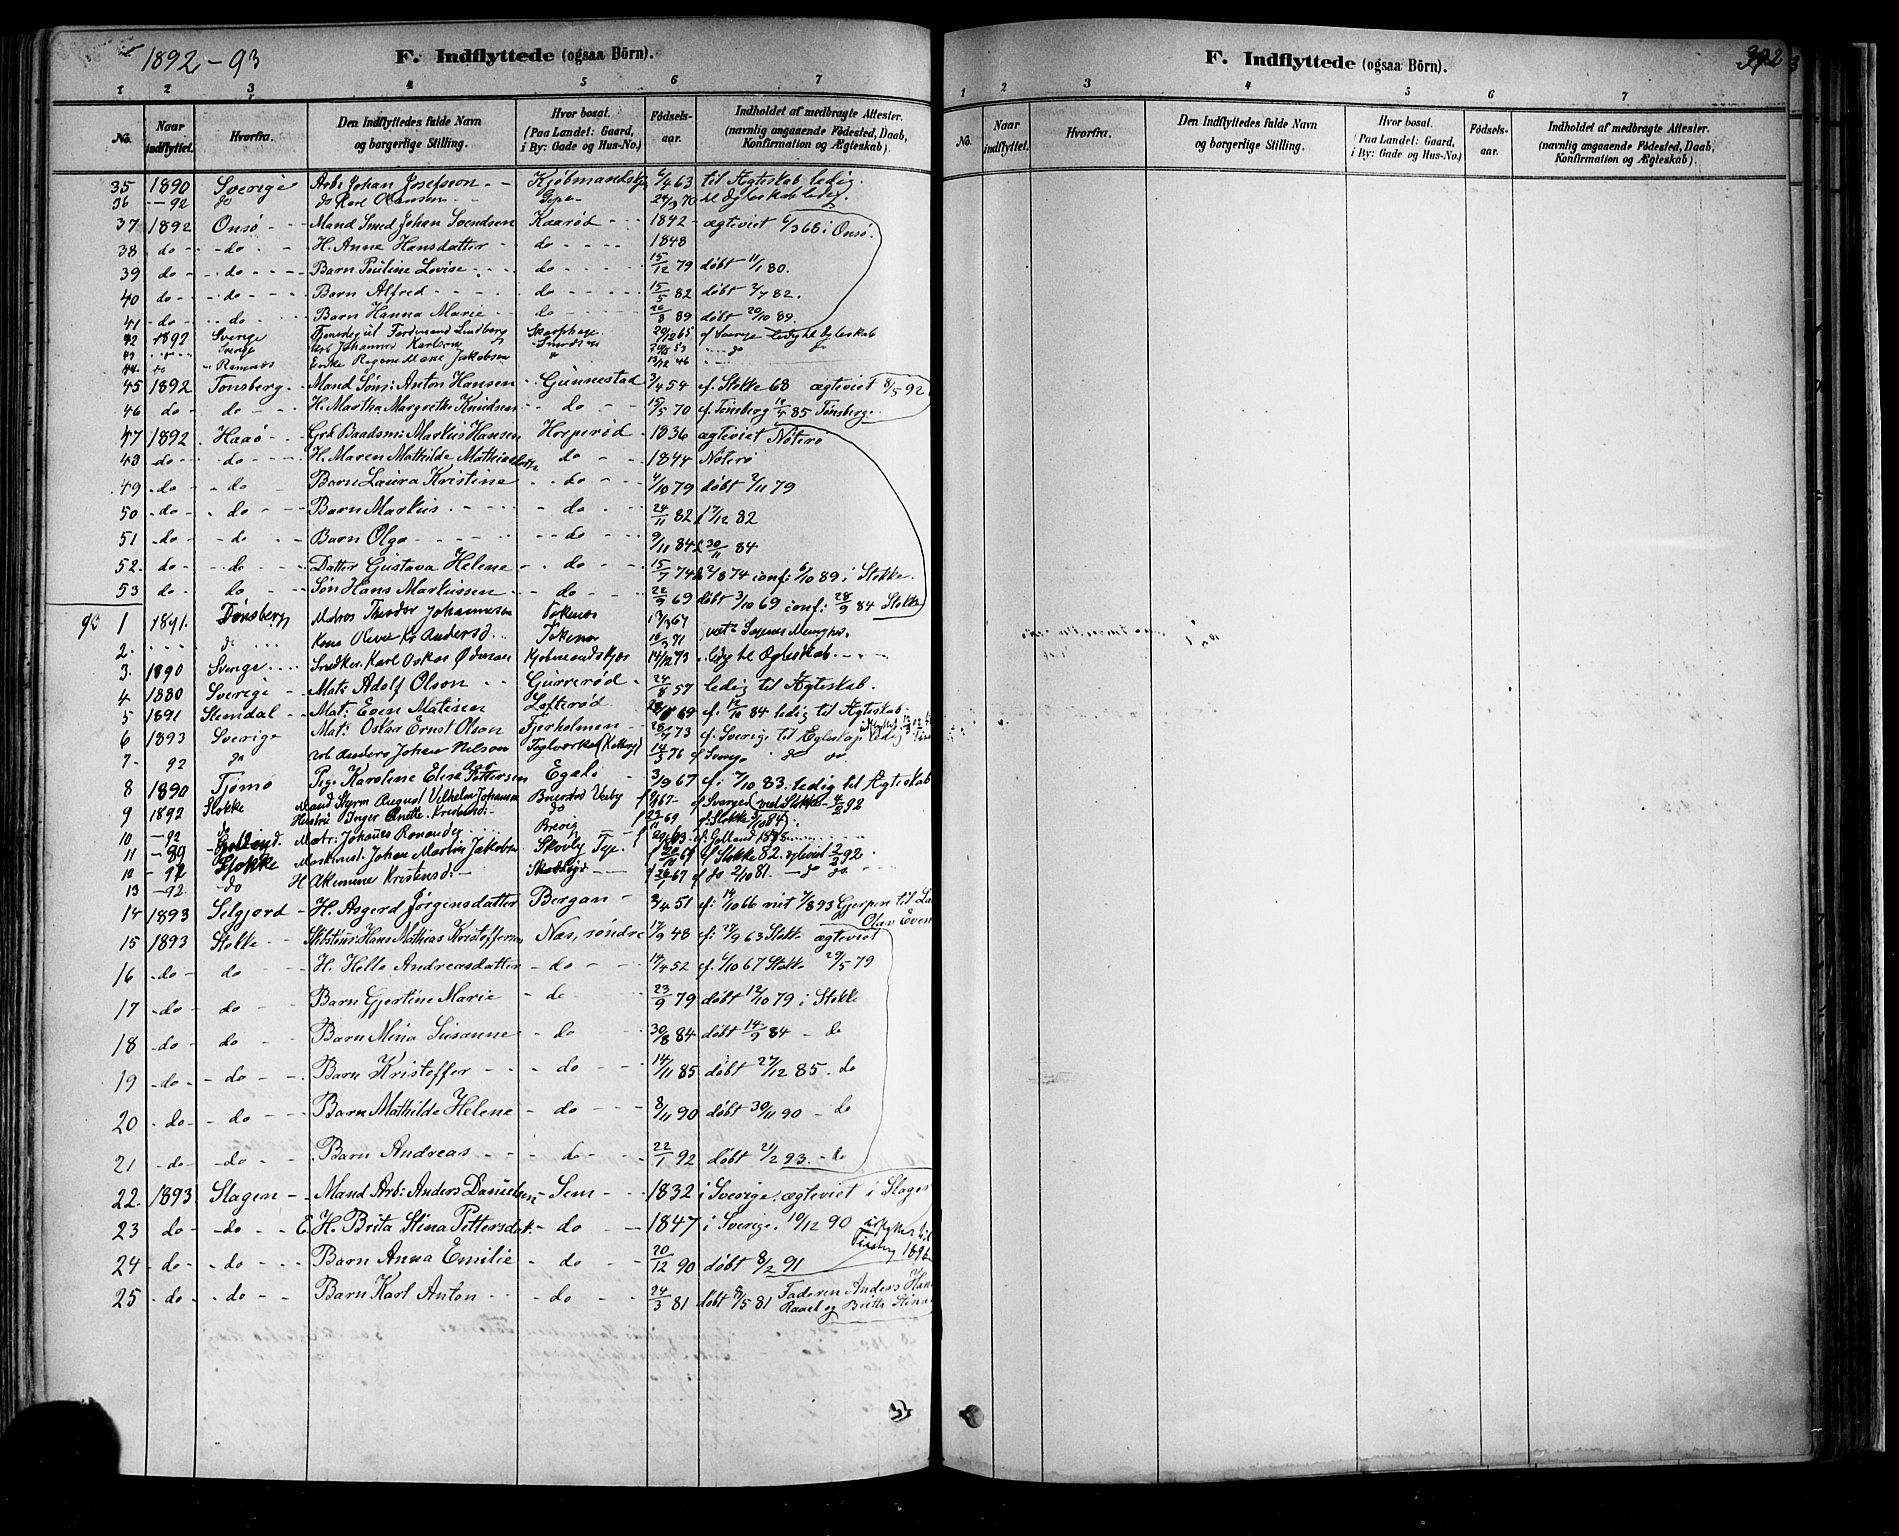 1892-93
F. Indflyttede (ogsaa Börn).
1 2 3 4 5 6 7
No. Naar indflyttet. Hvorfra. Den Indflyttedes fulde Navn og borgerlige Stilling. Hvor bosat. (Paa Landet: Gaard, i By: Gade og Hus-No.) Fødsels-aar. Indholdet af medbragte Attester. (navnlig angaaende Fødested, Daab, Konfirmation og Ægteskab).
35 1890 Sverige Arb: Johan Josefson 6/4 63 til Ægteskab ledig.
36 - 92 do do Karl 24/3 70 til Ægteskab ledig.
37 1892 Onsø Mand Smed Johan Svendsen Kaarød 1842 ægteviet 6/3 68 i Onsø.
38 do do H. Anne Hansdatter do 1848
39 do do Barn Pauline Lovise do 15/12 79 døbt 11/1 80.
40 do do Barn Alfred do 15/5 82 døbt 2/7 82.
41 do do Barn Hanna Marie do 26/8 89 døbt 20/10 89.
42 1892 Sverige Ferdinand Lindberg 20/12 65 f Sverige ledig til Ægteskab
43 Sverige Arb Johannes 53 do do
44 Ragna Marie Jakobsen 13/12 46
45 1892 Tønsberg Mand Søm: Anton Hansen Gunnestad 3/4 54 cf. Stokke 68 ægteviet 8/5 92
46 do do H. Martha Margrethe Knudsen do 15/5 70 cf. Tønsberg 12/4 85 Tønsberg.
47 1892 Haaø Grd Baadsm: Markus Hansen Horperød 1836 ægteviet Nøterø
48 do do H. Maren Mathilde Mathiasdatter do 1844 Nøterø
49 do do Barn Laura Kristine do 4/10 79 døbt 2/11 79
50 do do Barn Markus do 24/11 82 17/12 82
51 do do Barn Olga do 9/11 84 30/11 84
52 do do Datter Gustava Helene do 15/7 74 2/8 74 conf: 6/10 89 i Stokke.
53 do do Søn Hans Markussen do 22/9 69 døbt 3/10 69 conf: 28/9 84 Stokke
93 1 1891 Tønsberg Matros Theodor Johannesen Takenes 13/3 67
2 do Kona Andersd. Takenes 18/3 71
3 1890 Sverige Snedker Karl Oskar Ødman Kjøbmandskjær 14/12 73 ledig til Ægteskab
4 1880 Sverige Mat: Adolf Olson Gurrerød 24/8 57 ledig til Ægteskab.
5 1891 Slemdal Mat: Even Matisen Lofterød 69 cf. 12/10 84 ledig til Ægteskab.
6 1893 Sverige Mat: Oskar Ernst Olson Fjerholmen 28/7 73 cf. Sverige til Ægteskap ledig
7 92 do Arb Anders Johan Nilson Teglverket 14/3 76 f Sverige do do
8 1890 Tjømø Pige Karoline Elise Pettersen Egeli 3/9 67 cf: 7/10 83. ledig til Ægteskab
9 1892 Stokke Mand Styrm August Vilhelm Johansen Veiby 67 f Sverige (viet Stokke 92
do Hustru Inger Anette do 69 cf Stokke 84)
10 - 92 Matr. Johanes Brevig 83
11 - 89 Johan Martin Jakobsen Skovly Teje 69 cf Stokke 82. ægtviet 92.
12 - 92 Stokke H Akemine Kristensd. 26/1 67 cf do 2/10 81. - do do
13 - 92 do
14 1893 Selgjord H. Asgerd Jørgensdatter Bergan 3/4 51 cf: 14/10 66 viet 7/8 93 Gjerpen til
Olav Even
15 1893 Stokke Hans Mathias Kristoffersen Næs, søndre 17/9 48 cf: 27/9 63 Stokke ægteviet
16 do do H. Helle Andreasdatter do 14/4 52 cf. 6/10 67 Stokke 29/5 79
17 do do Barn Gjertine Marie do 23/9 79 døbt 12/10 79 i Stokke
18 do do Barn Mina Susanne do 30/8 84 døbt 14/9 84 - do
19 do do Barn Kristoffer do 14/11 85 døbt 27/12 85. do
20 do do Barn Mathilde Helene do 8/11 90 døbt 30/11 90 - do
21 do do Barn Andreas do 22/1 92 døbt 21/2 93. - do
22 1893 Slagen Mand Arb: Anders Danielsen Sem 1832 i Sverige. ægteviet i Slagen
23 do do E. H. Brita Stina Pettersdt. do 1847 i Sverige. 10/12 90 udflyttet til
Tønsberg 1896
24 do do Barn Anna Emilie do 20/12 90 døbt 8/2 91
25 do do Barn Karl Anton do 24/3 81 døbt 8/5 81 Faderen Anders Han
og Britta Stina
F. Indflyttede (ogsaa Börn).
392
1 2 3 4 5 6 7
No. Naar indflyttet. Hvorfra. Den Indflyttedes fulde Navn og borgerlige Stilling. Hvor bosat. (Paa Landet: Gaard, i By: Gade og Hus-No.) Fødsels-aar. Indholdet af medbragte Attester. (navnlig angaaende Fødested, Daab, Konfirmation og Ægteskab).